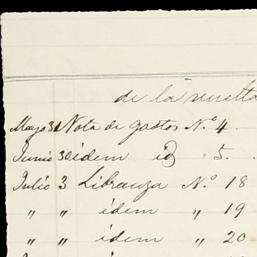 de la vuelta
Mayo 31 Nota de gastos N.º 4.
Junio 30 idem id 5.
Julio 3 Libranza N.º 18
" " idem " 19
" " idem " 20